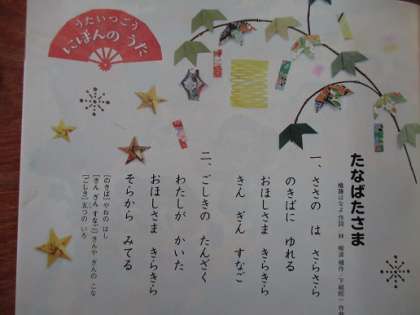 うたいつごう
にほんの うた
たなばたさま
一、ささの は さらさら
のきばに ゆれる
おほしさま きらきら
きん ぎん すなご
二、ごしきの たんざく
わたしが かいた
おほしさま きらきら
そらから みてる
[のきば]やねの はし
[きん ぎん すなご]きんや ぎんの こな
[ごしき]五つの いろ